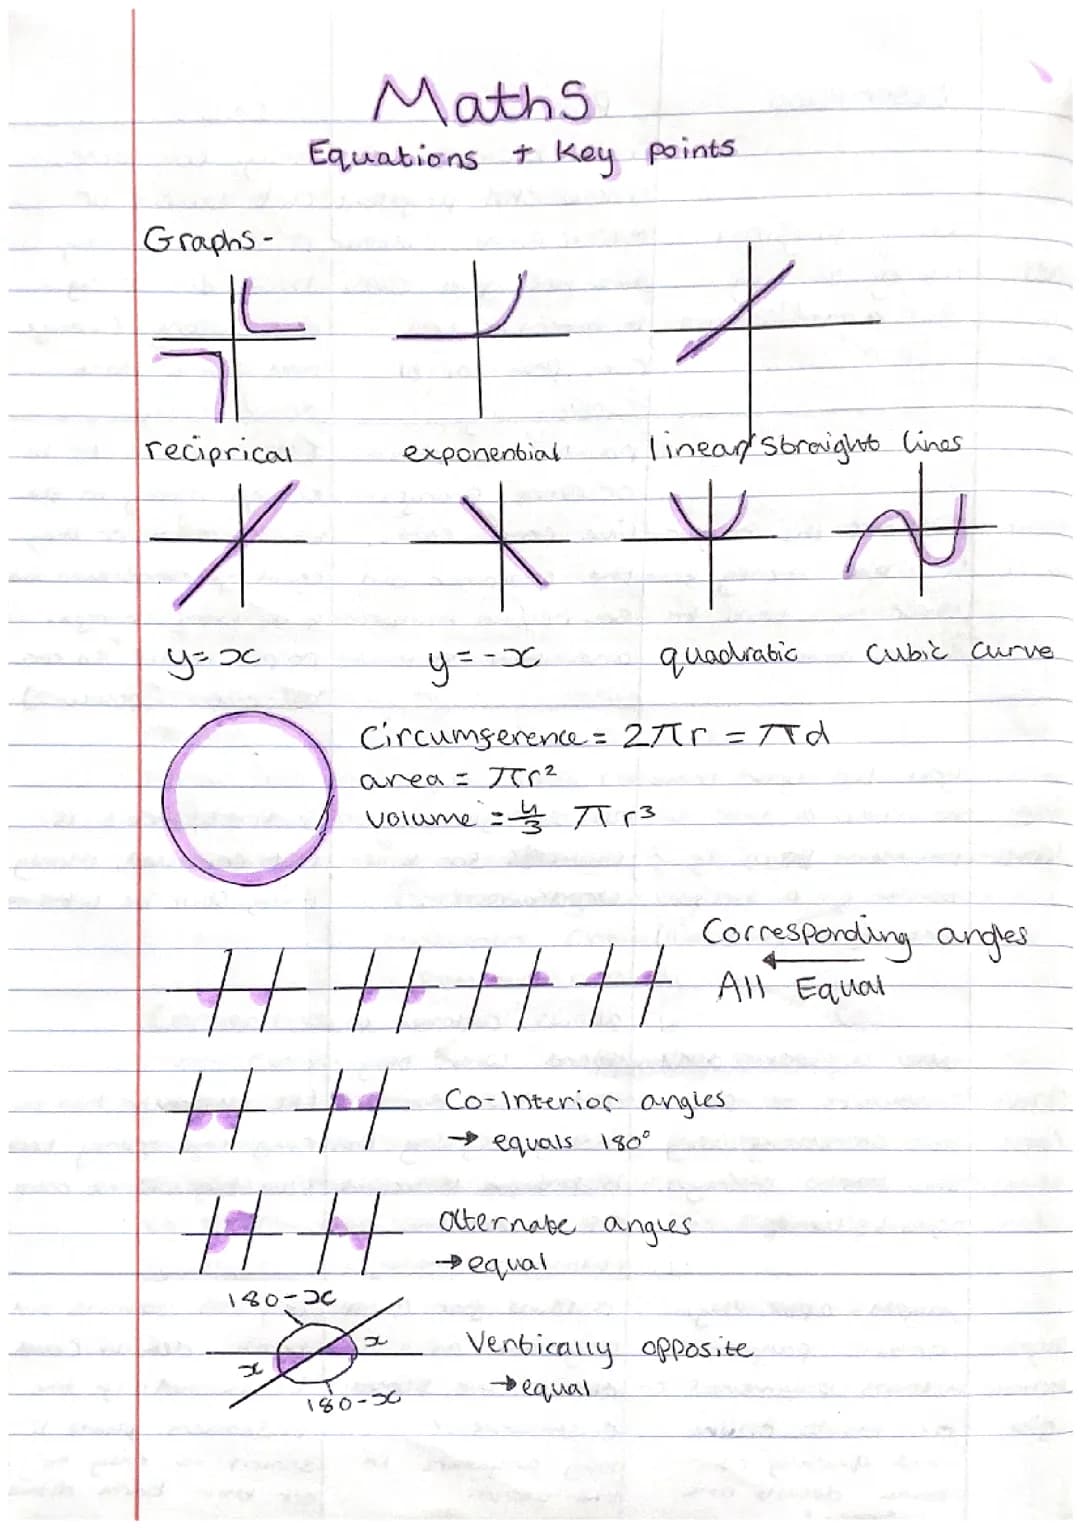 Maths
Equations + Key points
Graphs-
reciprical
exponential
linear/straight lines
y=x
y=-x
quadratic
cubic curve
Circumference = 2πr = πd
area = πr²
volume = 4/3 πr³
Corresponding angles
←
All Equal
Co-Interior angles
→ equals 180°
alternate angles
→ equal
180-x
x
x
180-x
Vertically opposite
→ equal